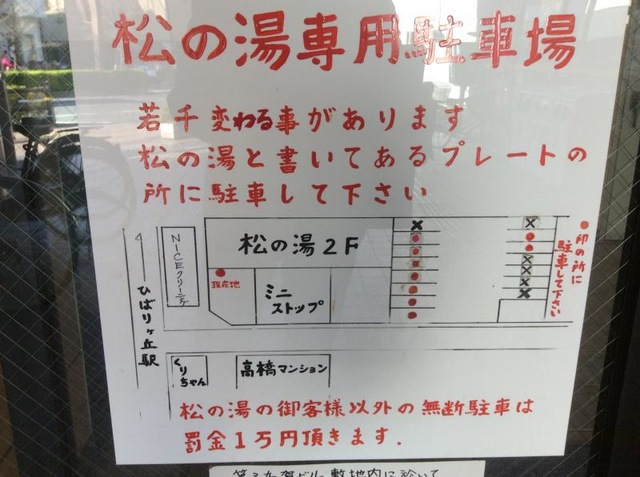 松の湯専用駐車場
若千変わる事があります
松の湯と書いてあるプレートの
所に駐車して下さい
松の湯2F
NICEクリーニング
現在地
ミニ
ストップ
●印の所に
駐車して下さい
ひばりヶ丘駅
くり
ちゃん
高橋マンション
松の湯の御客様以外の無断駐車は
罰金1万円頂きます.